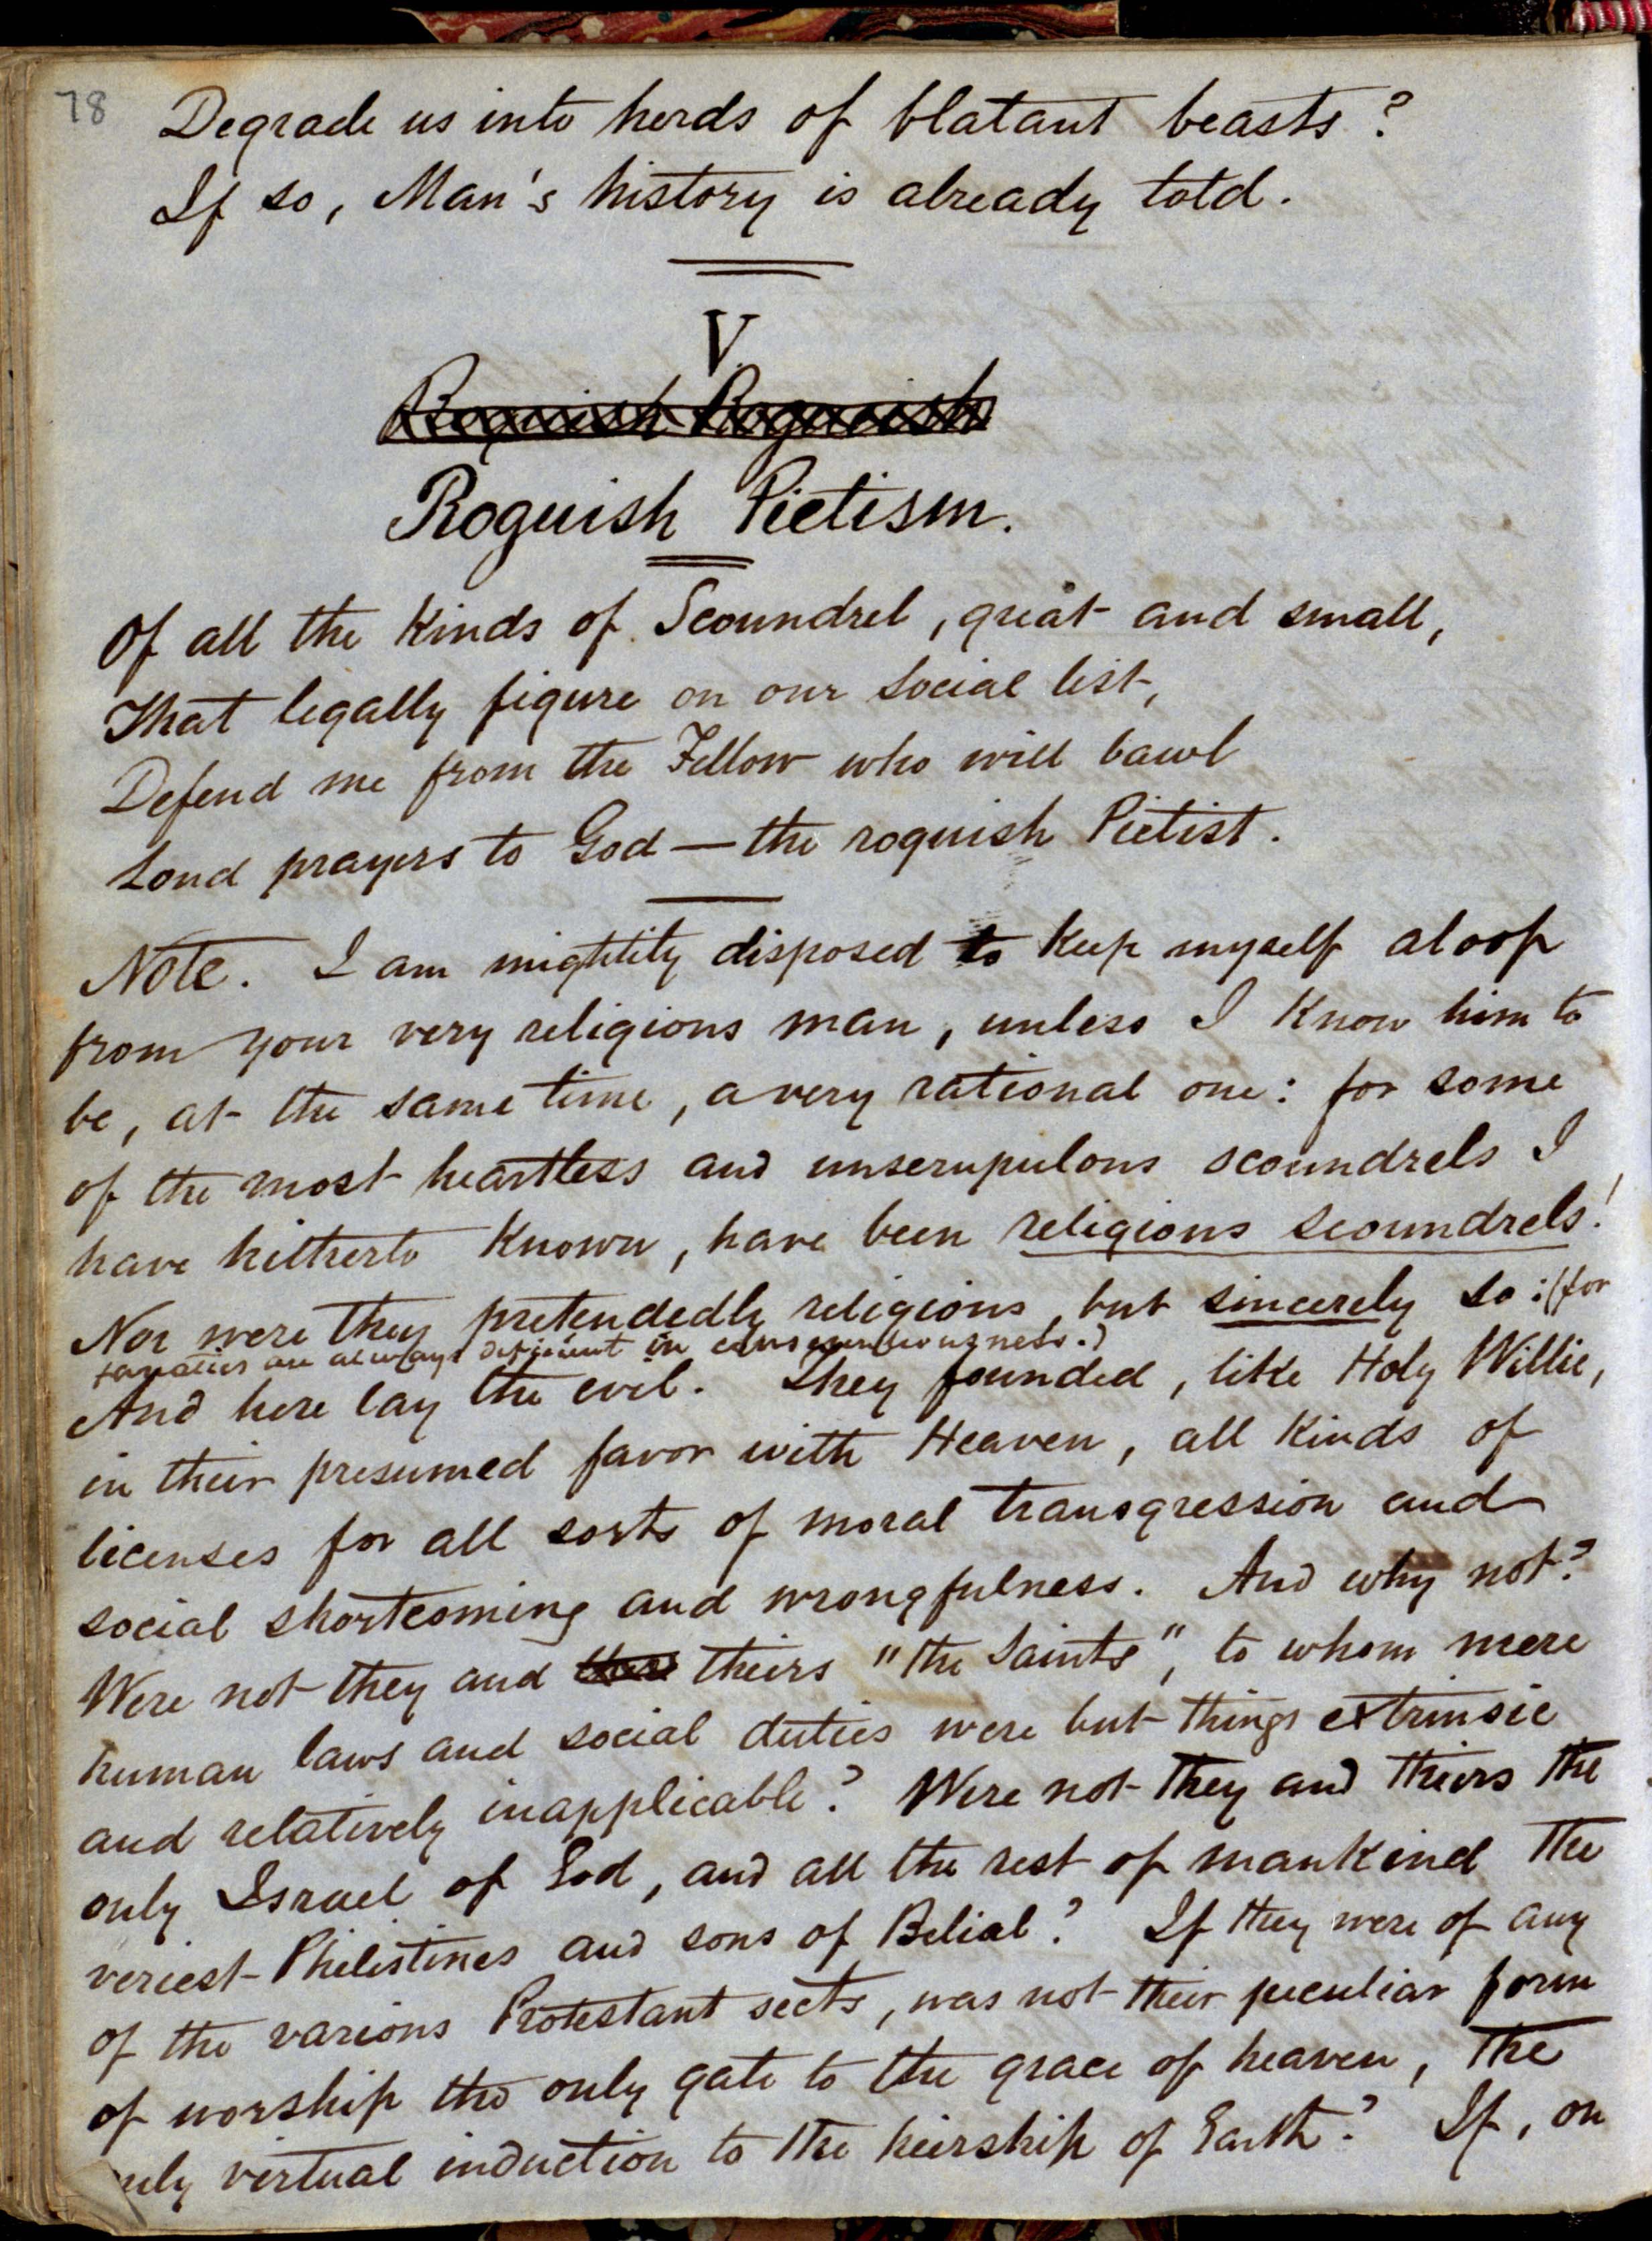 78
Degrade us into herds of blatant beasts?
If so, Man's history is already told.
V.
Roguish Roguish
Roguish Pietism.
Of all the Kinds of Scoundrel, great and small,
That legally figure on our social list,
Defend me from the Fellow who will bawl
Loud prayers to God — the roguish Pietist.
Note. I am mightily disposed to Keep myself aloof
from your very religious man, unless I Know him to
be, at the same time, a very rational one: for some
of the most heartless and unscrupulous scoundrels I
have hitherto Known, have been religious scoundrels!
Nor were they pretendedly religious, but sincerely so: (for
fanatics are always deficient in conscientiousness.)
And here lay the evil. They founded, like Holy Willie,
in their presumed favor with Heaven, all Kinds of
licenses for all sorts of moral transgression and
social shortcoming and wrongfulness. And why not?
Were not they and theirs "the Saints", to whom mere
human laws and social duties were but things extrinsic
and relatively inapplicable? Were not they and theirs the
only Israel of God, and all the rest of mankind the
veriest Philistines and sons of Belial? If they were of any
of the various Protestant sects, was not their peculiar form
of worship the only gate to the grace of heaven, the
only virtual induction to the heirship of Earth? If, on